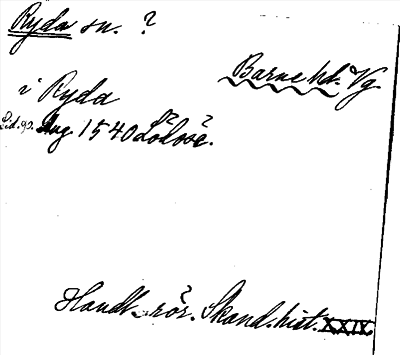 Ryda sn. ?
Barne hd. Vg.
i Ryda
Lid. 90. Aug 1540
Handl. rör. Skand. hist. XXIX.